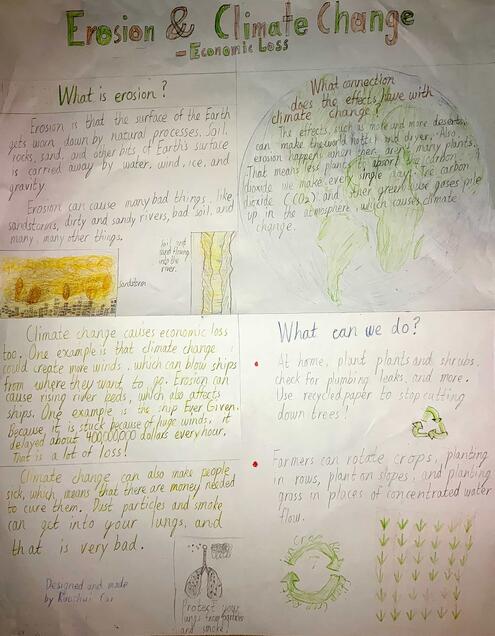 Erosion & Climate Change
- Economic Loss
What is erosion?
Erosion is that the surface of the Earth
gets worn down by natural processes. Soil,
rocks, sand, and other bits of Earth's surface
is carried away by water, wind, ice, and
gravity.
Erosion can cause many bad things, like
sandstorms, dirty and sandy rivers, bad soil, and
many, many other things.
Soil and
sand flowing
into the
river.
sandstorm
What connection
does the effects have with
climate change?
The effects, such as more and more deserts,
can make the world hotter and drier. Also,
erosion happens when there aren't many plants.
That means less plants to absorb carbon
dioxide we make every single day. The carbon
dioxide (CO2) and other green house gases pile
up in the atmosphere, which causes climate
change.
Climate change causes economic loss
too. One example is that climate change
could create more winds, which can blow ships
from where they want to go. Erosion can
cause rising river beds, which also affects
ships. One example is the ship Ever Given.
Because it is stuck because of huge winds, it
delayed about 400,000,000 dollars every hour.
That is a lot of loss!
Climate change can also make people
sick, which means that there are money needed
to cure them. Dust particles and smoke
can get into your lungs, and
that is very bad.
Designed and made
by
Protect your
lungs from particles
and smoke!
What can we do?
At home, plant plants and shrubs,
check for plumbing leaks, and more.
Use recycled paper to stop cutting
down trees!
Farmers can rotate crops, planting
in rows, plant on slopes, and planting
grass in places of concentrated water
flow.
crop